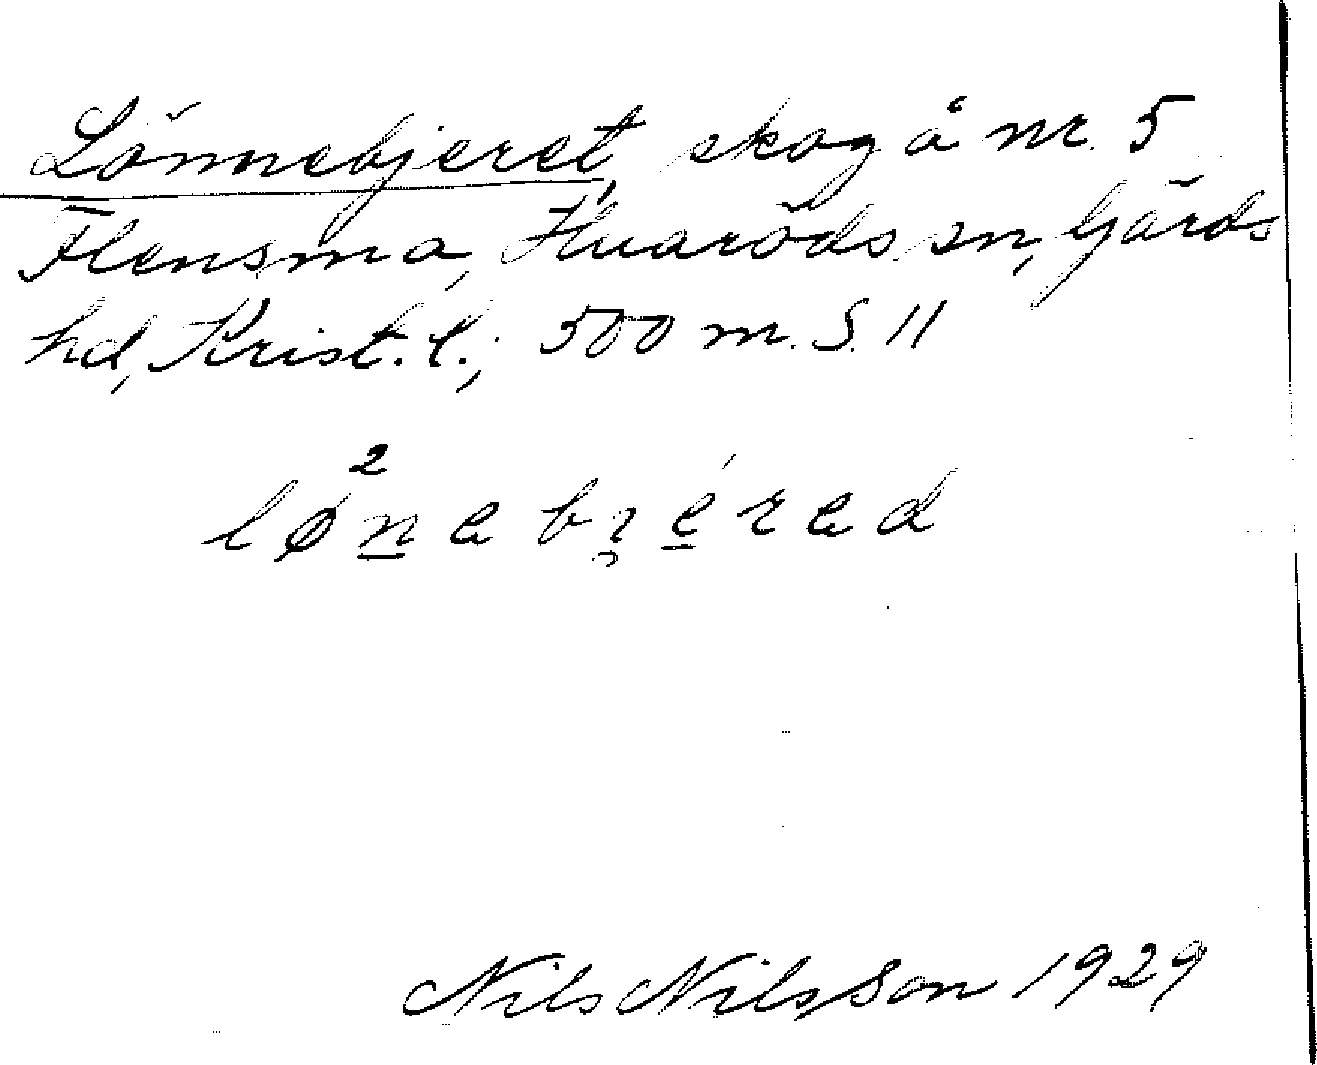 Lönnebjeret, skog å nr. 5
Flensma, Huaröds sn, Gärds
hd, Krist. l.; 500 m. S. 11
lø²nebi̯éred
Nils Nilsson 1929